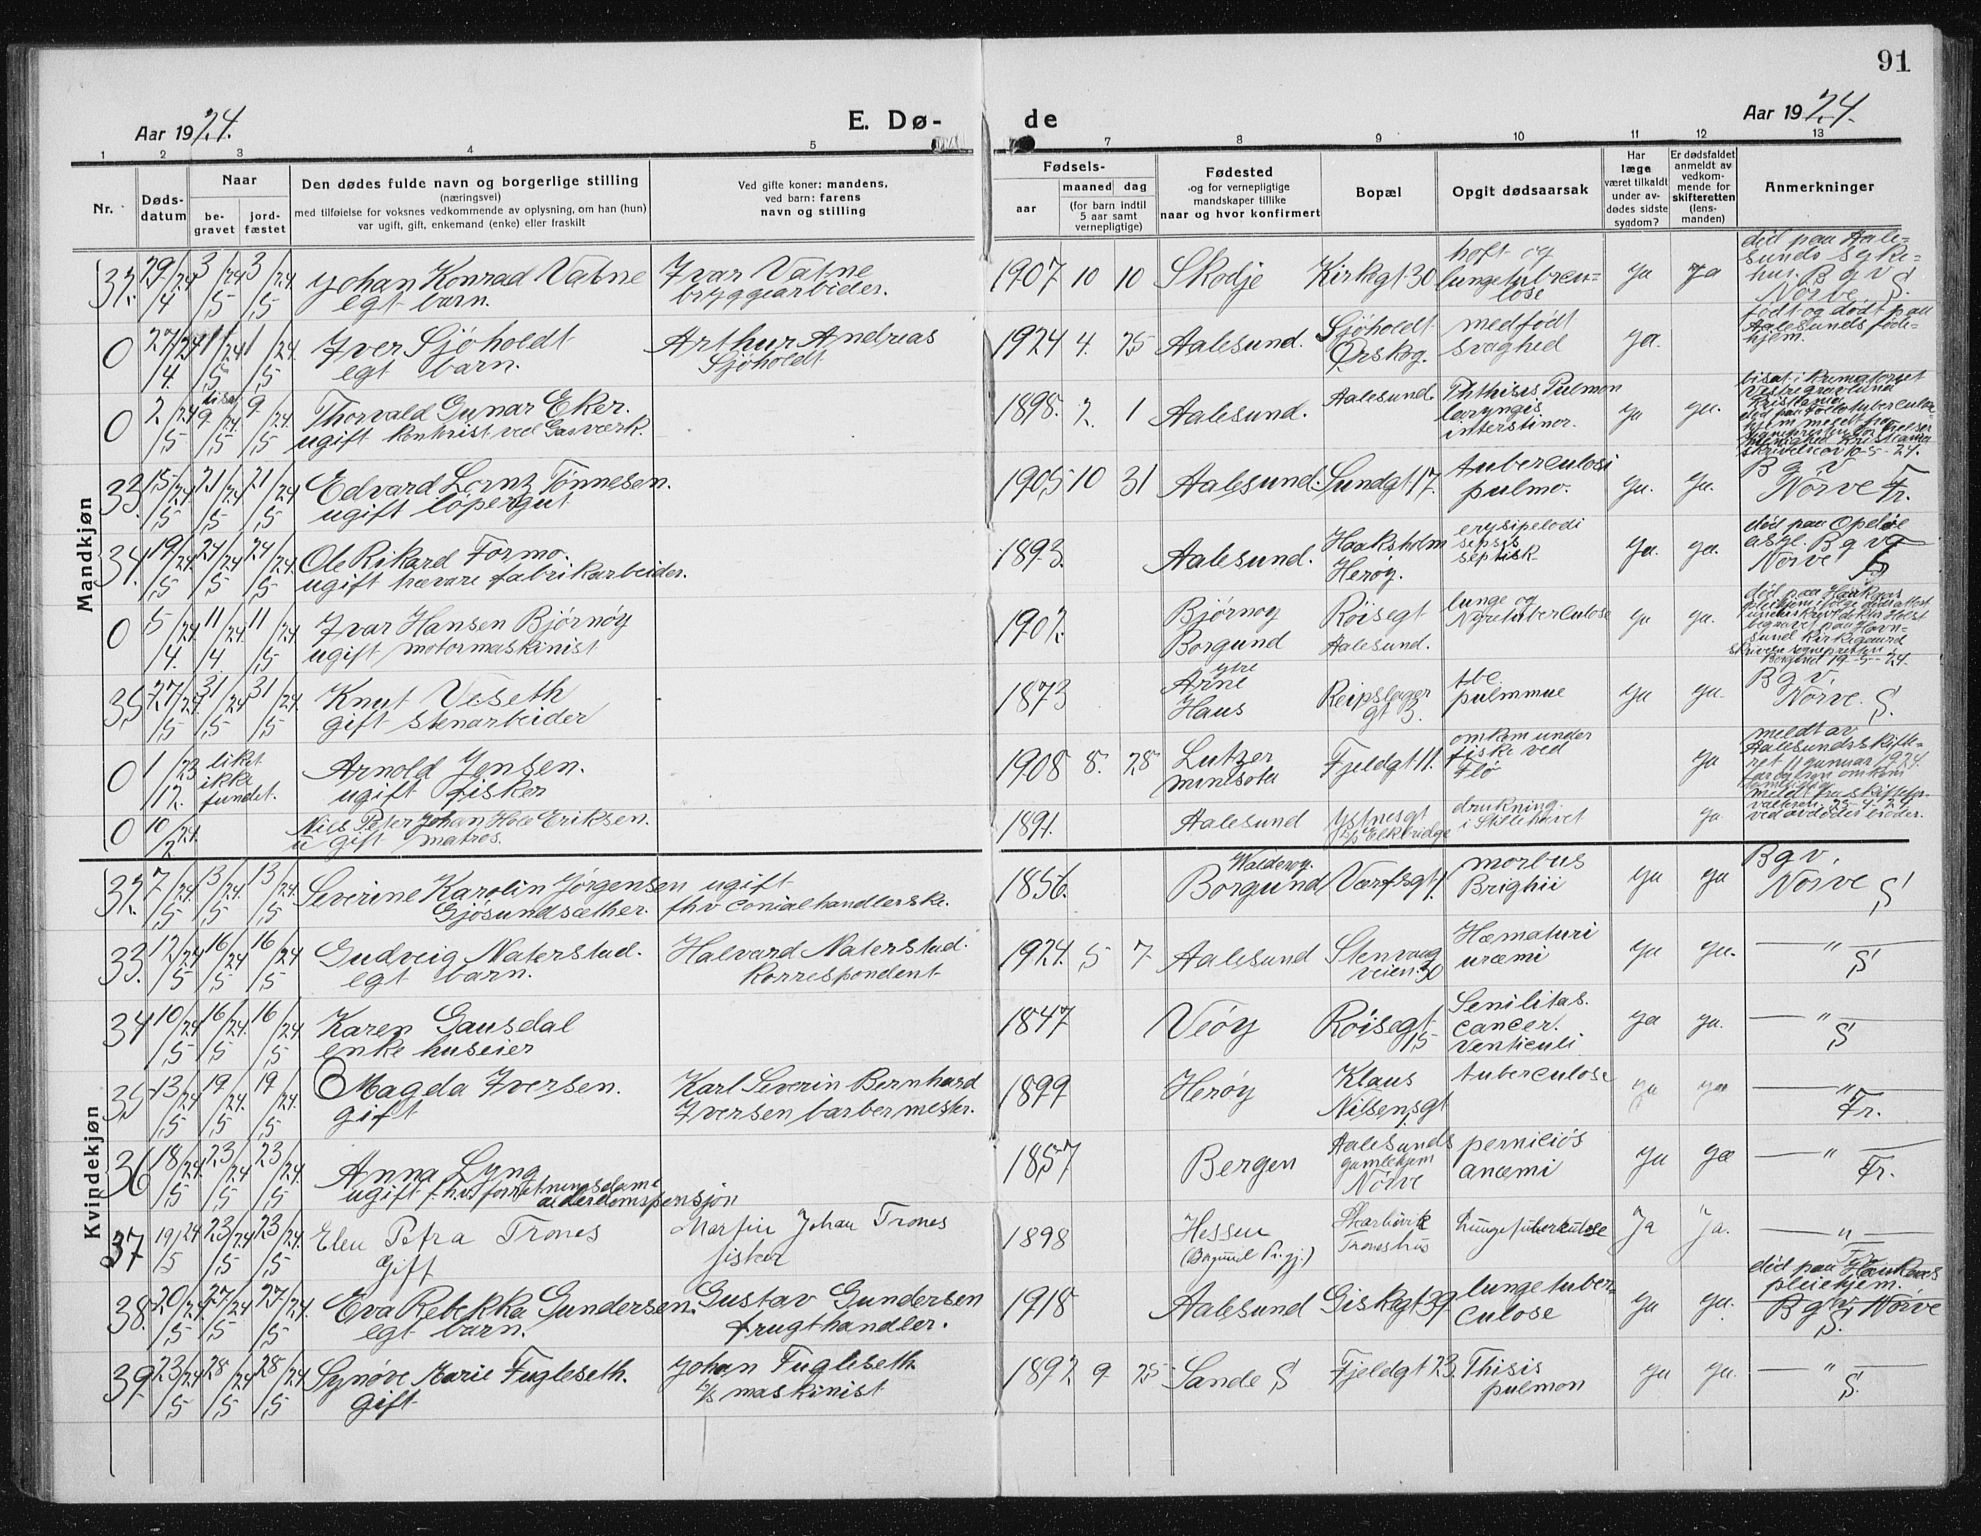 91
Aar 1924.
E. Dø-
de
Aar 1924.
1 2 3 4 5 7 8 9 10 11 12 13
Nr.
Døds-
datum
Naar
be-
gravet
jord-
fæstet
Den dødes fulde navn og borgerlige stilling
(næringsvei)
med tilføielse for voksnes vedkommende av oplysning, om han (hun)
var ugift, gift, enkemand (enke) eller fraskilt
Ved gifte koner: mandens,
ved barn: farens
navn og stilling
Fødsels-
aar
maaned dag
(for barn indtil
5 aar samt
vernepligtige)
Fødested
og for vernepligtige
mandskaper tillike
naar og hvor konfirmert
Bopæl
Opgit dødsaarsak
Har
læge
været tilkaldt
under av-
dødes sidste
sygdom?
Er dødsfaldet
anmeldt av
vedkom-
mende for
skifteretten
(lens-
manden)
Anmerkninger
Mandkjøn
32. 29/4 24 3/5 24 3/5 24. Johan Konrad Vatne
egt barn.
Ivar Vatne
bryggearbeider.
1907 10 10 Skodje Kirkegt 30
hoft og
lungetubercu-
lose
ja ja
død paa Aale-
sunds syke-
hus. B g v
Nørve S.
0 27/4. 24 1/5 24 1/5 24. Iver Sjøholdt
egt barn.
Arthur Andreas
Sjøholdt
1924 4. 25 Aalesund.
Sjøholdt
Ørskog.
medfødt
svaghed
ja.
født og død paa
Aalesunds føde-
hjem.
0 2/5 24 bisat 9/5 24. 9/5 24. Thorvald Gunar Eker.
ugift kontorist ved Gasværk.
1898. 2. 1 Aalesund. Aalesund.
Phthisis Pulmon
laryngis
interstinor.
ja ja.
bisat i krematoriet
Vestre gravlund
Kristiania
skrivelse av 10-5-24.
33. 15/5 24 21/5 24 21/5 24 Edvard Lornz Tønnesen.
ugift løpergut
1905 10 31 Aalesund. Sundgt 17.
tuberculosi
pulmo.
ja. ja.
B g v
Nørve Fr.
34. 19/5 24. 24/5 24 24/5 24. Ole Rikard Formo.
ugift trævare fabrikarbeider.
1893. Aalesund.
Haaksholm
Herøy.
erysipelodi
sepsis
septisk
ja. ja.
død paa Opeløe
asyl. B g v
Nørve
0 5/4. 24 11/4. 24. 11/5 24. Ivar Hansen Bjørnøy
ugift motormaskinist
1902.
Bjørnøy
Borgund
Røisegt
Aalesund.
lunge og
Nyretuberculose
ja ja.
død paa Haukaas
pleiehjem ifølge dødsattest
underskrevet doktor Holst
begravet paa Havn-
sund kirkegaard
skrivelse sogneprest i
Borgund 19-5-24.
35 27/5 24. 31/5 24 31/5 24 Knut Veseth
gift stenarbeider
1873
ytre
Arne
Haus
Reipslager
gt 3.
tbc
pulmmue
ja ja.
B g v.
Nørve. S.
0 1/12. 23 liket
ikke
fundet.
Arnold Jensen.
ugift fisker
1908 8. 28
Lutzer
Minisota
Fjeldgt 11.
omkom under
fiske ved
Flø
ja
meldt av
Aalesunds skifte-
ret 11 januar 1924.
0 10/2 24. Nils Peter Johan Hole Eriksen.
ugift matros.
1891. Aalesund
drukning
i Stillehavet
ja.
25-4-24
ved avdødes broder.
Kvindekjøn
32. 7/5 24 13/5 24. 13/5 24. Severine Karolin Jørgensen
Gjøsundsæther.
ugift
fhv colonialhandlerske.
1856.
Valderøy.
Borgund
Værfsgt 1.
morbus
Brighii
ja ja
B g v.
Nørve S
33. 12/5 24 16/5 24 16/5 24 Gudveig Naterstad.
egt barn.
Halvard Naterstad.
korrespondent
1924. 5 7 Aalesund
Stenvaag
veien 30
Hæmaturi
uræmi
ja ja.
— " —
S
34 10/5 24. 16/5 24 16/5 24 Karen Gausdal
enke huseier
1847 Veøy
Røisegt
15
Senilitas.
cancer.
Venticuli
ja ja.
— " —
S
35 13/5 24 19/5 24. 19/5 24. Magda Iversen.
gift
Karl Severin Bernhard
Iversen barbermester.
1899 Herøy
Klaus
Nilsensgt
tuberculose
ja ja
— " —
Fr.
36 18/5 24. 23/5 24 23/5 24. Anna Lyng
ugift fhv. forretningsdame
alderdomspensjon
1857 Bergen
Aalesunds
gamlehjem
Nørve
perniciøs
anæmi
ja ja
— " —
Fr.
37 19/5 24 23/5 24 23/5 24. Elen Petra Trones
Gift
Martin Johan Trones
fisker
1898
Hessen
(Borgund Pr.gj.)
Skarbøvik
Troneshus
Lungetuberkulose
Ja Ja.
— " —
Fr.
38. 20/5 24 27/5 24 27/5 24. Eva Rebekka Gundersen.
egt barn.
Gustav Gundersen
frugthandler.
1918 Aalesund Giskegt 39.
lungetuber-
culose
ja ja.
død paa Haukaas
pleiehjem.
B g v. Nørve
S.
39. 23/5 24 28/5 24 28/5 24. Synøve Marie Fugleseth.
Gift
Johan Fugleseth
maskinist
1892 9 25 Sande S Fjeldgt 23.
Thisis
pulmon
ja ja.
— " —
S.